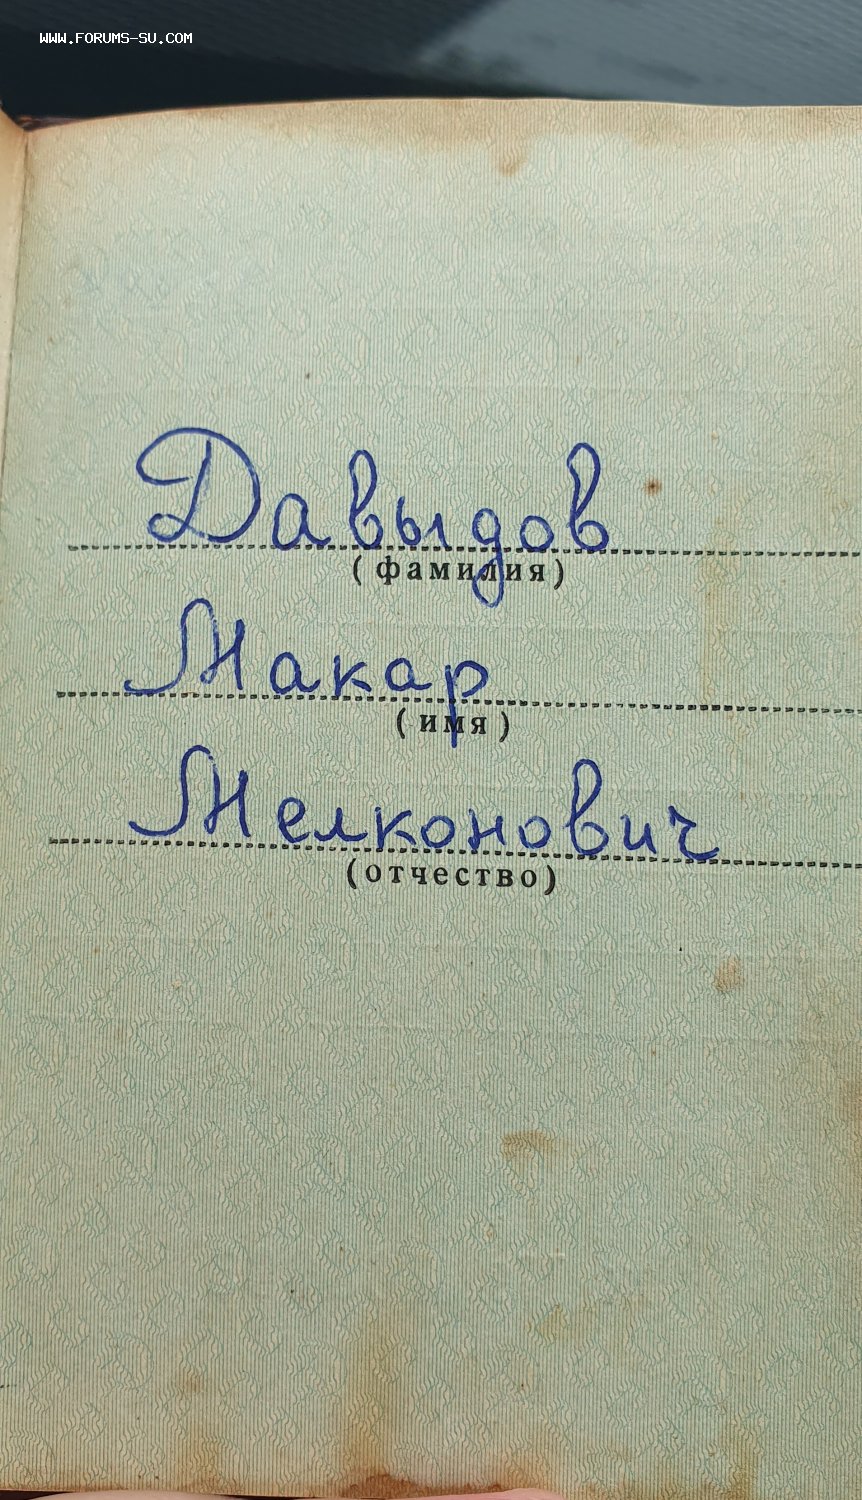 WWW.FORUMS-SU.COM
Давыдов
(фамилия)
Макар
(имя)
Мелконович
(отчество)